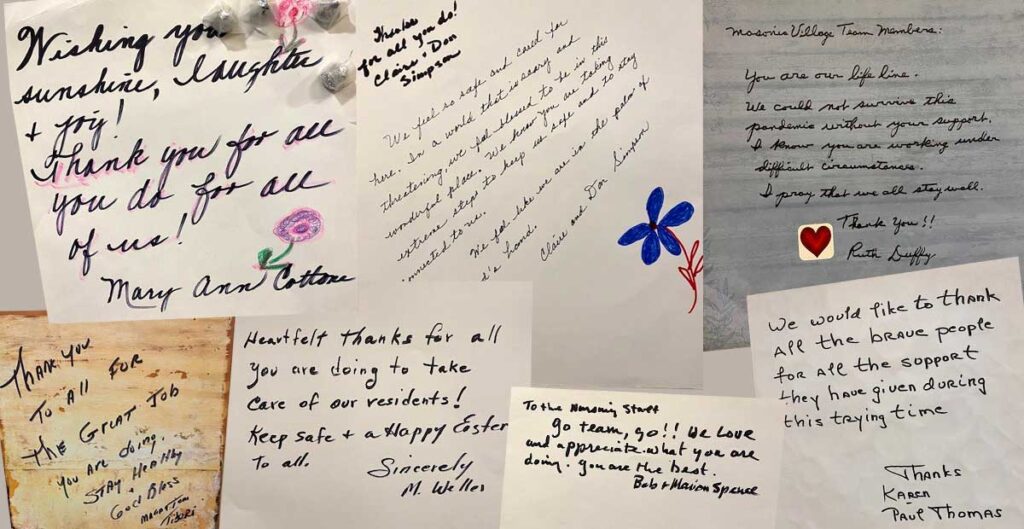 Wishing you
sunshine, laughter
+ joy!
Thank you for all
you do for all
of us!
Mary Ann Cottone
Thanks
for all you do!
Claire + Don
Simpson
We feel so safe and cared for
here. In a world that is scary and
threatening, we feel blessed to be in this
wonderful place. We know you are taking
extreme steps to keep us safe and to stay
connected to us.
We feel like we are in the palm of
God's hand.
Claire and Don Simpson
Masonic Village Team Members:
You are our life line.
We could not survive this
pandemic without your support.
I know you are working under
difficult circumstances.
I pray that we all stay well.
Thank You!!
Ruth Duffy
Thank You
To all For
The Great Job
You are doing.
Stay Healthy
God Bless
Heartfelt thanks for all
you are doing to take
care of our residents!
Keep safe + a Happy Easter
To all.
Sincerely
M. Weller
To the Nursing Staff
Go team, go!! We love
and appreciate what you are
doing. You are the best.
Bob + Marion Spence
We would like to thank
all the brave people
for all the support
they have given during
this trying time
Thanks
Karen
Paul Thomas